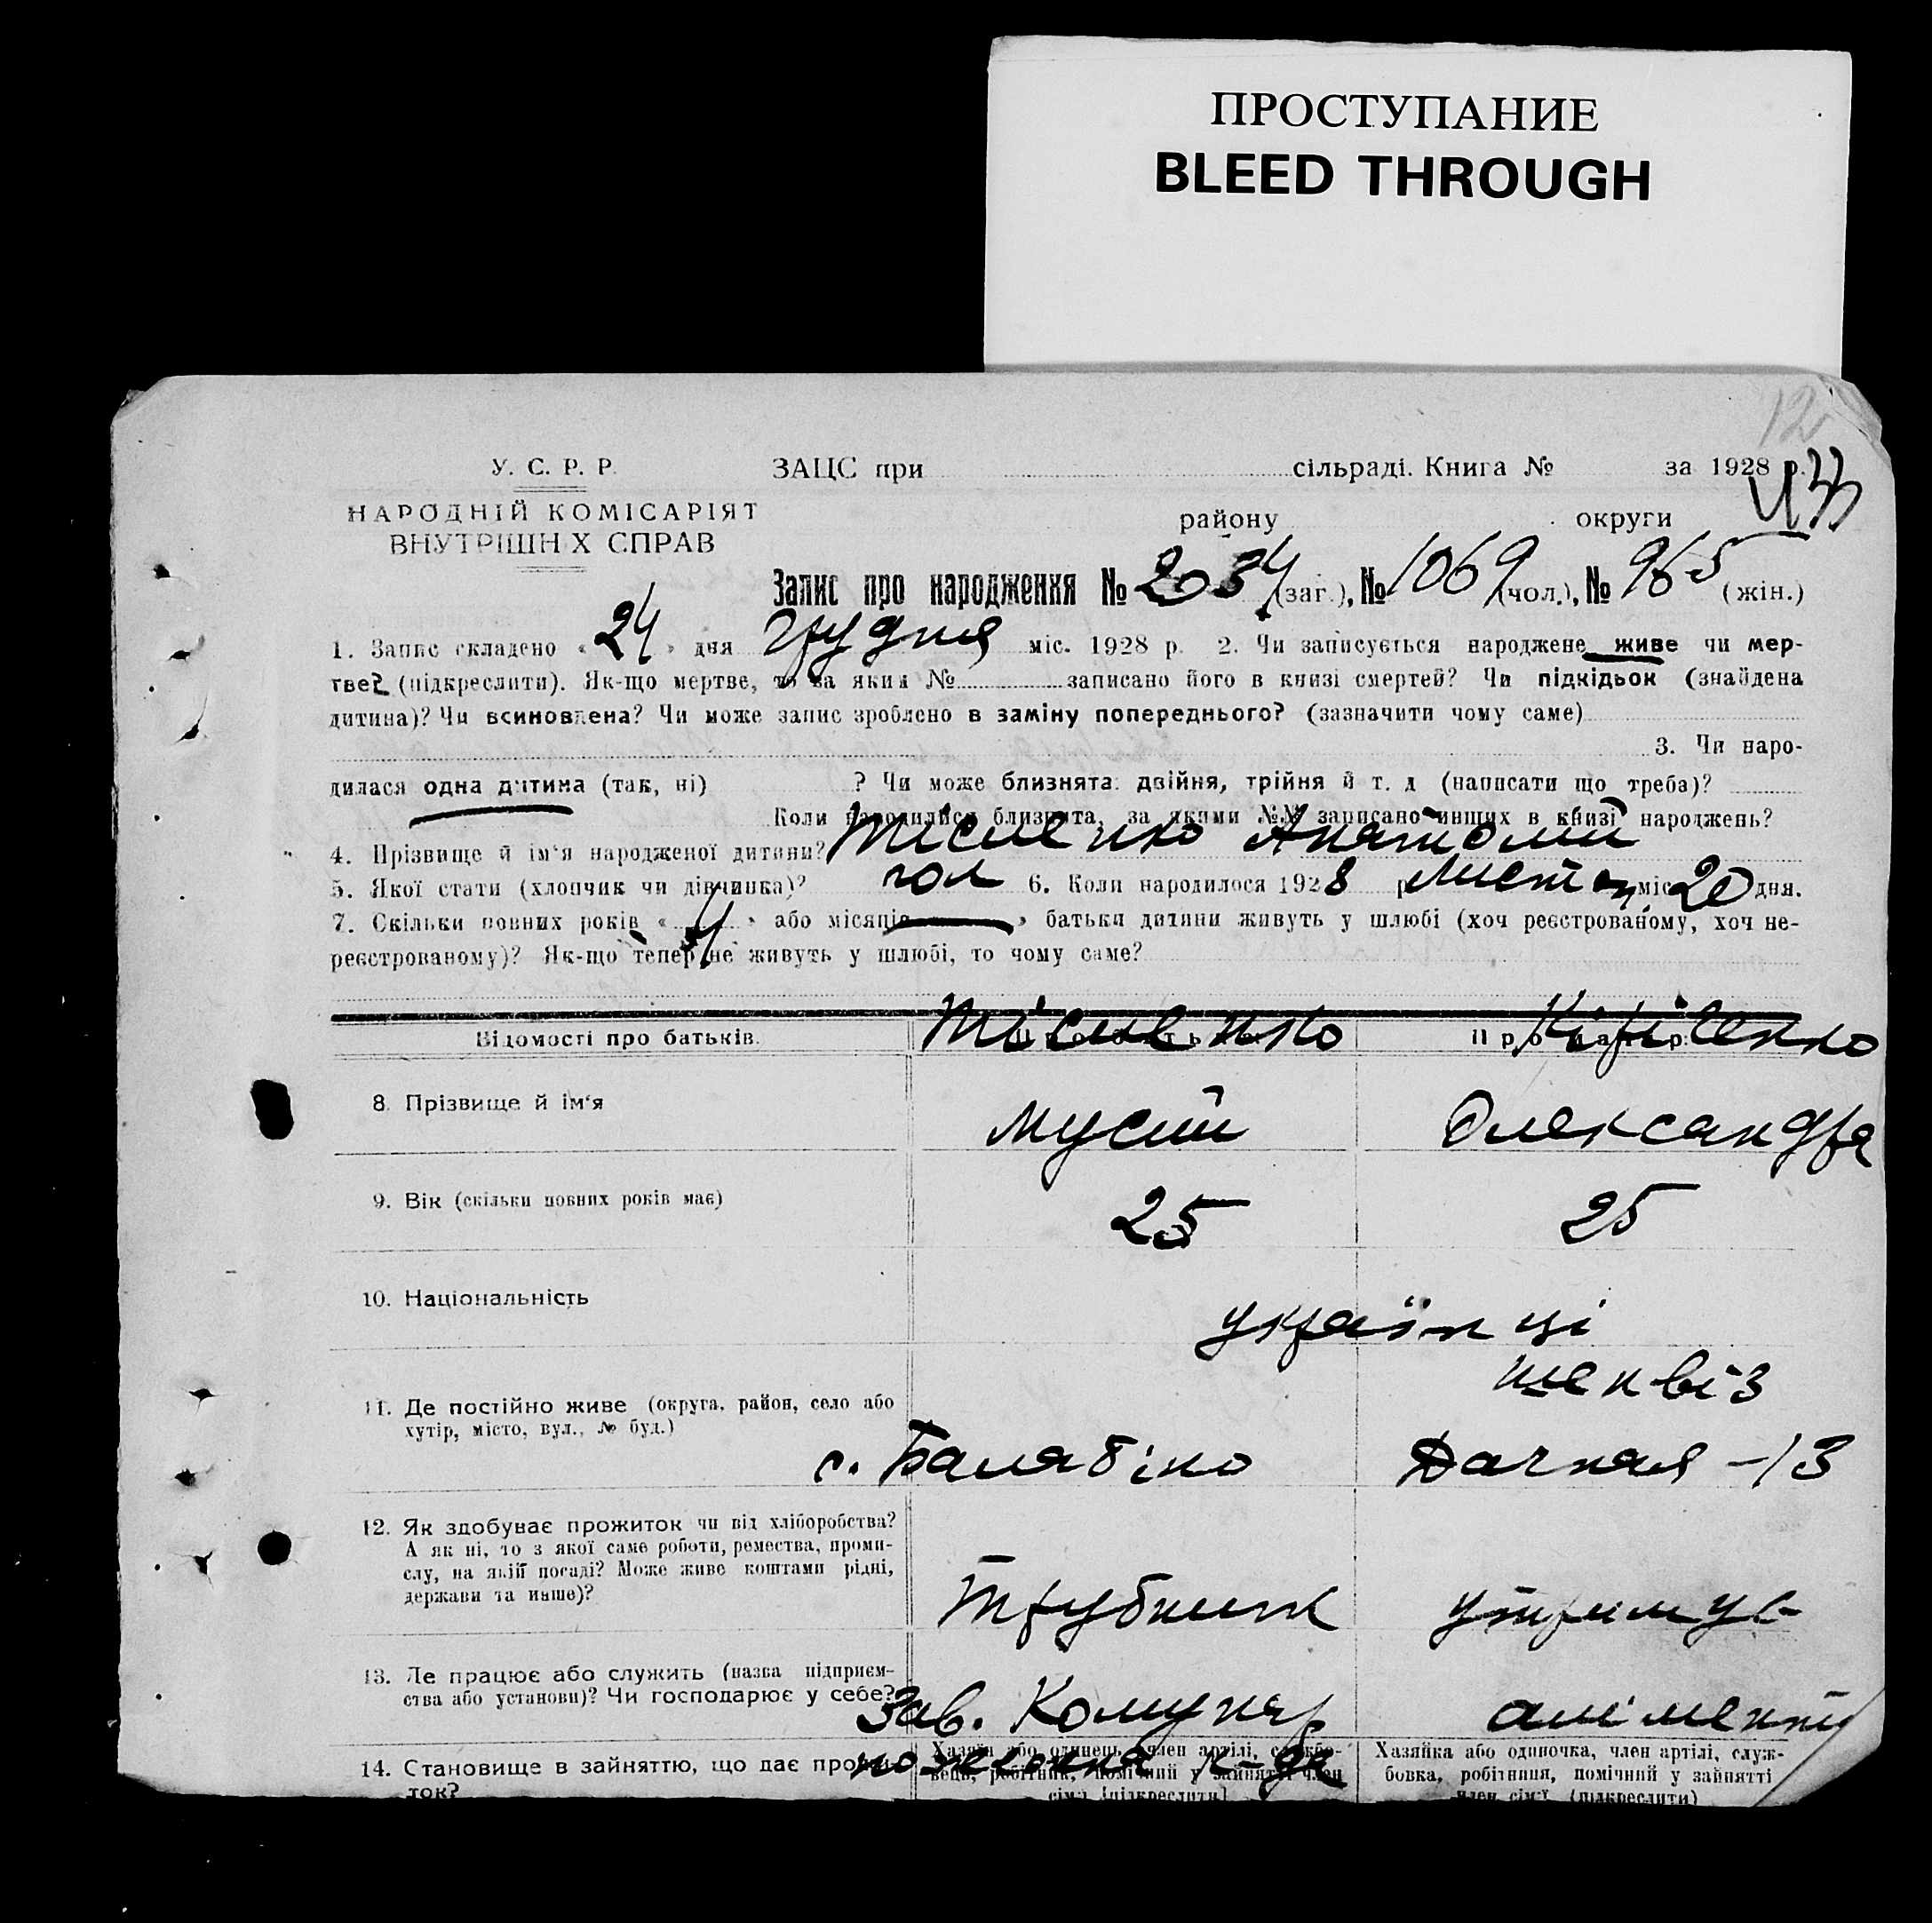 ПРОСТУПАНИЕ
BLEED THROUGH
12
У. С. Р. Р. ЗАЦС при сільраді. Книга № за 1928 р.
НАРОДНІЙ КОМІСАРІЯТ району округи
ВНУТРІШНІХ СПРАВ
Запис про народження № 2034 (заг.), № 1069 (чол.), № 965 (жін.)
1. Запис складено «24» дня грудня міс. 1928 р. 2. Чи записується народжене живе чи мер-
тве? (підкреслити). Як-що мертве, то за яким № записано його в книзі смертей? Чи підкідьок (знайдена
дитина)? Чи всиновлена? Чи може запис зроблено в заміну попереднього? (зазначити чому саме)
3. Чи наро-
дилася одна дитина (так, ні) ? Чи може близнята: двійня, трійня й т. д (написати що треба)?
Коли народилися близнята, за якими №№ записано инших в книзі народжень?
4. Прізвище й ім'я народженої дитини? Тісменко Анатолий
5. Якої стати (хлопчик чи дівчинка)? чол 6. Коли народилося 1928 р. Листоп міс 20 дня.
7. Скільки повних років « 4 » або місяців « » батьки дитини живуть у шлюбі (хоч реєстрованому, хоч не-
реєстрованому)? Як-що тепер не живуть у шлюбі, то чому саме?
Відомості про батьків. Тісменко Кіріленко
8. Прізвище й ім'я Мусий Олександра
9. Вік (скільки повних років має) 25 25
10. Національність українці
11. Де постійно живе (округа, район, село або
хутір, місто, вул., № буд.)
с. Балабіно Дачная - 13
12. Як здобуває прожиток чи від хліборобства?
А як ні, то з якої саме роботи, ремества, проми-
слу, на якій посаді? Може живе коштами рідні,
держави та инше)?
Трубник утримує
13. Де працює або служить (назва підприєм-
ства або установи)? Чи господарює у себе? Зав. Комунар
14. Становище в зайняттю, що дає прожи-
ток?
Хазяїн або одинець, член артілі, службо-
вець, робітник, помічний у зайнятті член
сім'ї (підкреслити)
Хазяйка або одиночка, член артілі, служ-
бовка, робітниця, помічний у зайнятті
член сім'ї (підкреслити)